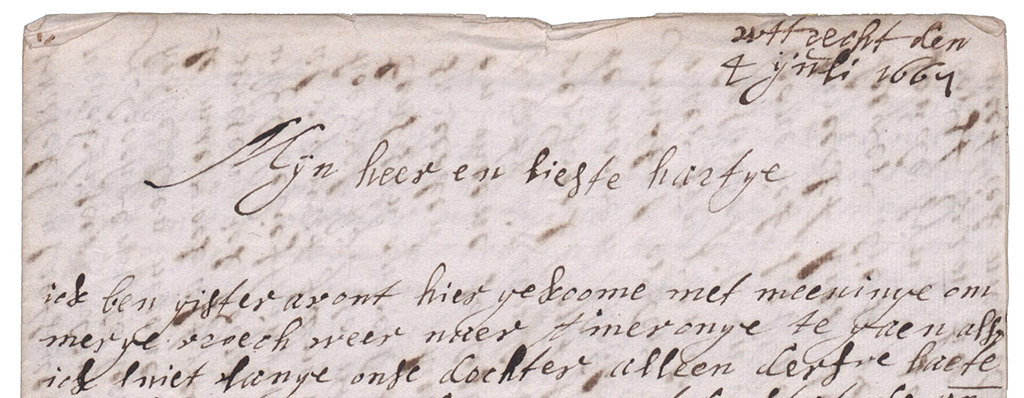 wttrecht den
4 ijuli 1667
Mijn heer en liefste hartye
ick ben gister avont hier gekoome met meeninge om
merge vroech weer naer Ameronge te gaen als
ick niet lange onse dochter alleen derfve laete